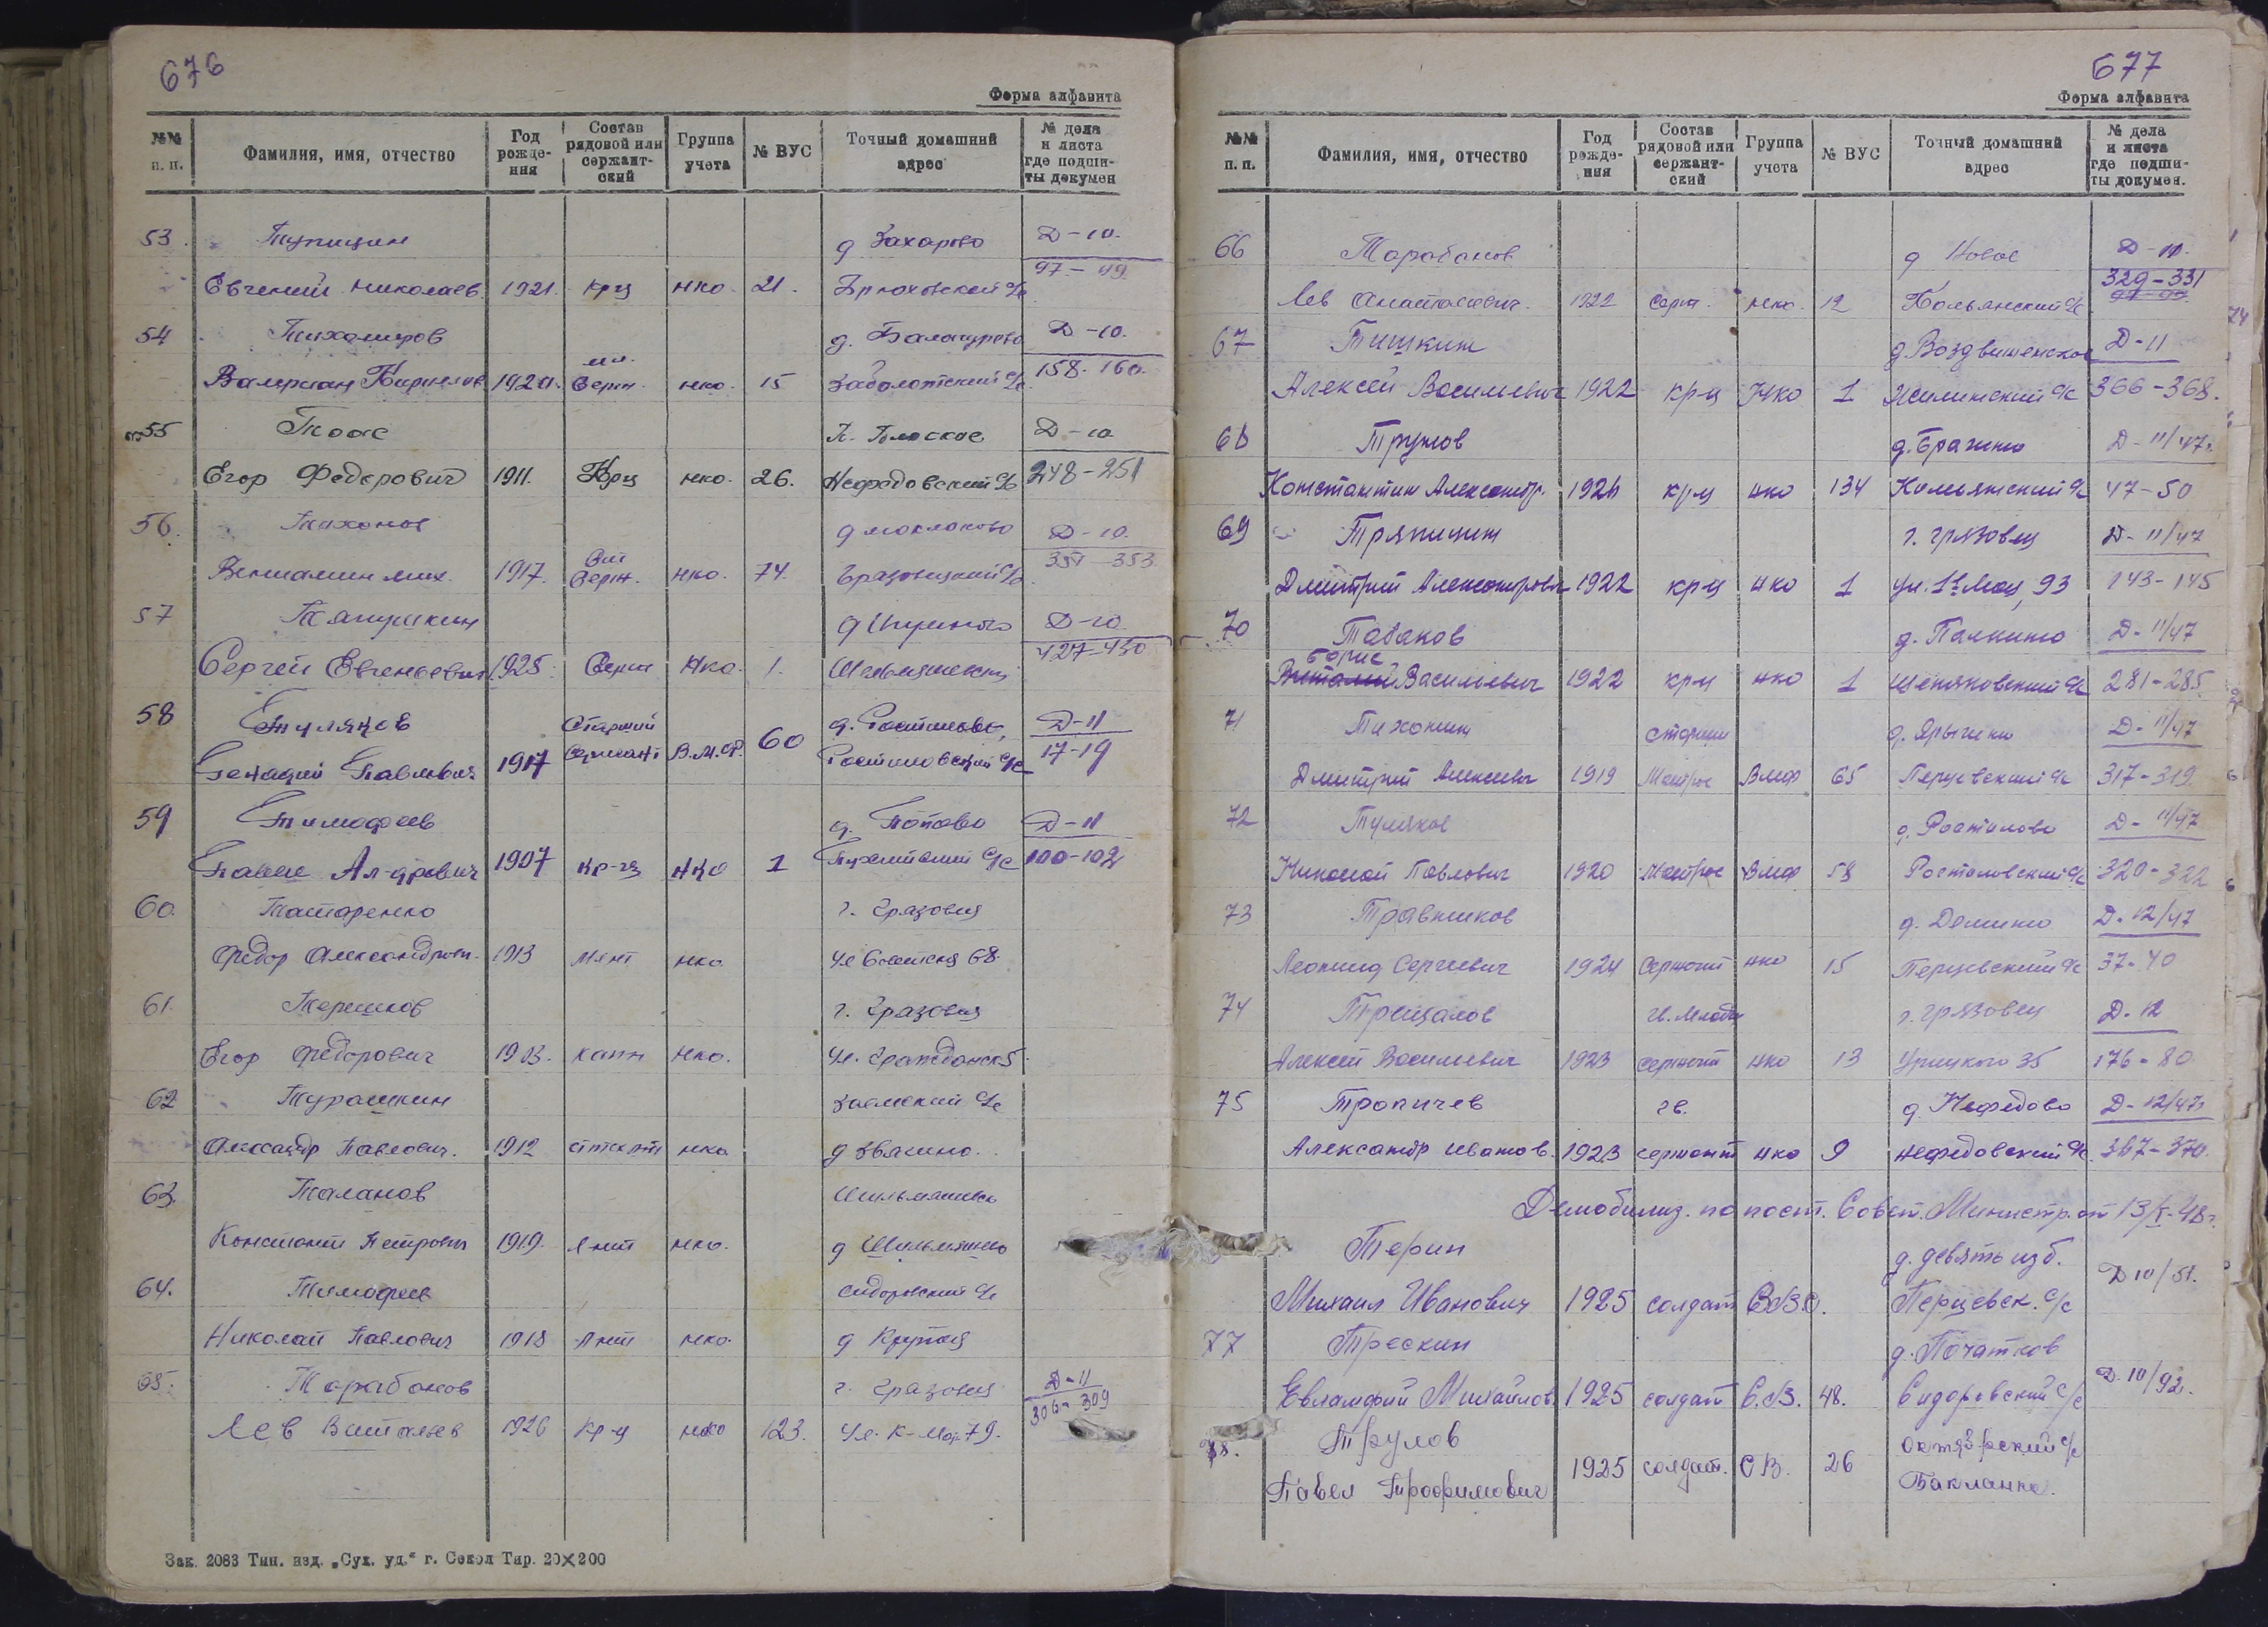 676
Форма алфавита
№№ п. п. Фамилия, имя, отчество Год рожде-ния Состав рядовой или сержант-ский Группа учета № ВУС Точный домашний адрес № дела и листа где подши-ты докумен
53. Тупицин д Захарово Д-10.
Евгений Николаев. 1921. крц НКО. 21. Брюховский с/с 97-99.
54 Тихомиров д. Д-10.
мл.
Валериан 1920. Серж. нко. 15 Заболотский с/с. 158-160.
55 П. Плоское Д-10
Егор Федорович 1911. Крц нко. 26. Нефедовский с/с 248-251
56. Тихонов д Маклаково Д-10.
Вениамин Мих. 1917. Серж. нко. 74. с/с. 351-353
57 Тяпушкин д Д-10.
Сергей Евгеньевич 1925. Серж НКО. 1. 427-430
58 Туляков Старший д. Ростилово, Д-11
Генадий Павлович 1917 Сержант В.М.Ф. 60 Ростиловский с/с 17-19
59 Тимофеев д. Попово Д-11
Павел Ал-дрович 1907 кр-ц НКО 1 с/с 100-102
60. Татаренко г. Грязовец
Федор Александров. 1913 нко. 68.
61. Терешков г. Грязовец
Егор Федорович 1903. капн нко. ул. Гражданск 5.
62 Турашкин Заемский с/с
Александр Павлович. 1912 нко. д Звягино.
63. Таланов
Констант Петрович 1919. Лнт нко. д
64. Тимофеев Сидоровский с/с
Николай Павлович 1918 Лнт нко. д Крутец
65. Тарабанов г. Грязовец Д-11
Лев Витальев 1926 Кр-ц нко 123. Ул. К-Мар. 79. 306-309
Зак. 2083 Тип. изд. „Сух. уд.“ г. Сокол Тир. 20×200
677
Форма алфавита
№№ п. п. Фамилия, имя, отчество Год рожде-ния Состав рядовой или сержант-ский Группа учета № ВУС Точный домашний адрес № дела и листа где подши-ты докумен.
66 Тарабанов д Новое Д-11.
Лев Анатольевич. 1922 серж. нко. 12 с/с. 329-331
67 Тишкин д. Воздвиженское Д-11
Алексей Васильевич 1922 кр-ц НКО 1 с/с 366-368.
68 Трунов д. Брагино Д-11/47г.
Константин Александр. кр-ц нко 134 Комьянский с/с 47-50
69 Тряпицин г. Грязовец Д-11/47
Дмитрий Александрович 1922 кр-ц нко 1 ул. 1е Мая, 93 143-145
70 Табаков д. Палкино Д-11/47
Борис
Виталий Васильевич 1922 кр-ц нко 1 с/с 281-285.
71 Тихонин старши д. Ярыгино Д-11/47
Дмитрий Алексеевич 1919 Матрос Вмф 65 Перцевский с/с 317-319
72 Туляков д. Ростилово Д-11/47
Николай Павлович 1920 Матрос Вмф 58 Ростиловский с/с 320-322
73 Травников д. Демино Д-12/47
Леонид Сергеевич 1924 сержант нко 15 Перцевский с/с 37-40
74 Трещалов гв. младш г. Грязовец Д-12
Алексей Васильевич 1923 сержант нко 13 Урицкого 35 176-80
75 Тропичев гв. д. Нефедово Д-12/47г
Александр Иванов. 1923 сержант нко 9 Нефедовский с/с. 367-370.
Демобилиз. по пост. Совет. Министр. от 13/I-48г.
Терин д. Девять изб. Д 10/51.
Михаил Иванович 1925 солдат С.В.О. Перцевск. с/с
77 Трескин д. Початков Д. 10/92.
Евлампий Михайлов. 1925 солдат С.В. 48. Сидоровский с/с
78. Трулов Октябрский с/с
Павел Трофимович 1925 солдат. С В. 26 Бакланка.